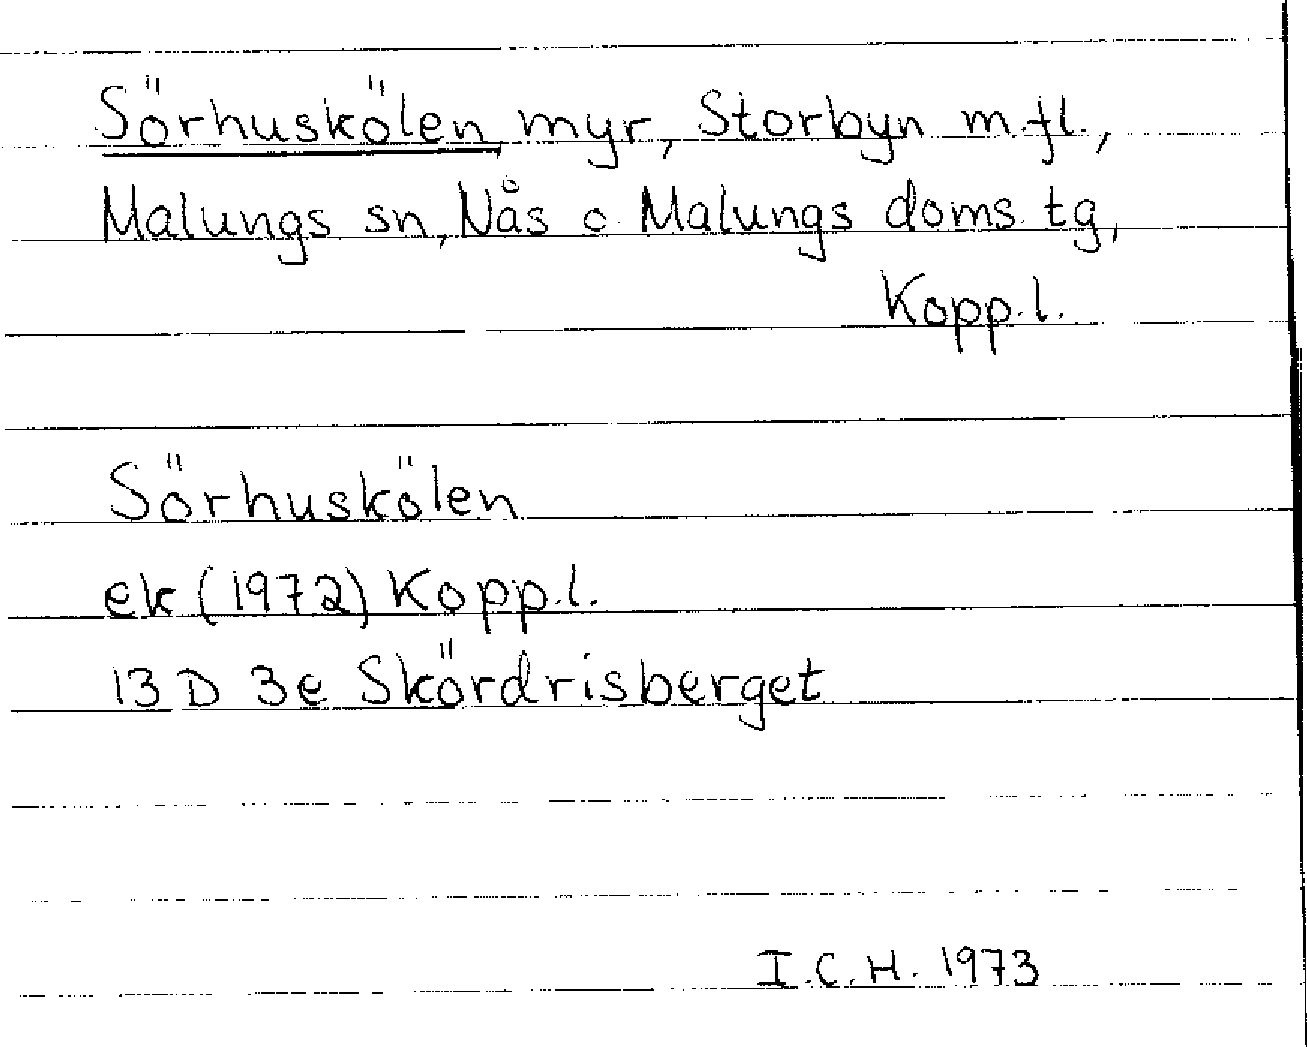 Sörhuskölen myr, Storbyn m.fl.,
Malungs sn, Nås o. Malungs doms. tg,
Kopp.l.
Sörhuskölen
ek (1972) Kopp.l.
13 D 3e Skördrisberget
I.C.H. 1973